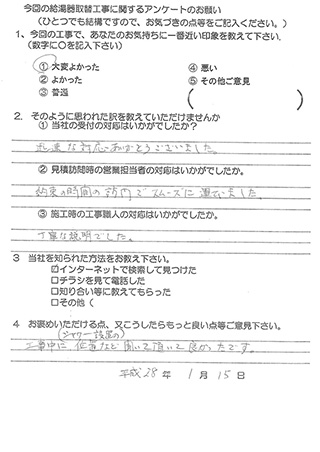 今回の給湯器取替工事に関するアンケートのお願い
(ひとつでも結構ですので、お気づきの点等をご記入ください。)
1、今回の工事で、あなたのお気持ちに一番近い印象を教えて下さい。
(数字に〇を記入下さい)
① 大変よかった ④ 悪い
② よかった ⑤ その他ご意見
③ 普通 ( )
2. そのように思われた訳を教えていただけませんか
① 当社の受付の対応はいかがでしたか?
迅速な対応ありがとうございました。
② 見積訪問時の営業担当者の対応はいかがでしたか。
約束の時間の訪問でスムーズに進でいました。
③ 施工時の工事職人の対応はいかがでしたか?
丁寧な説明でした。
3 当社を知られた方法をお教え下さい。
☑インターネットで検索して見つけた
□チラシを見て電話した
□知り合い等に教えてもらった
□その他 (
4 お褒めいただける点、又こうしたらもっと良い点等ご意見下さい。
(シャワー設置の)
工事中に位置など聞いて頂いて良かったです。
平成 28 年 1 月 15 日